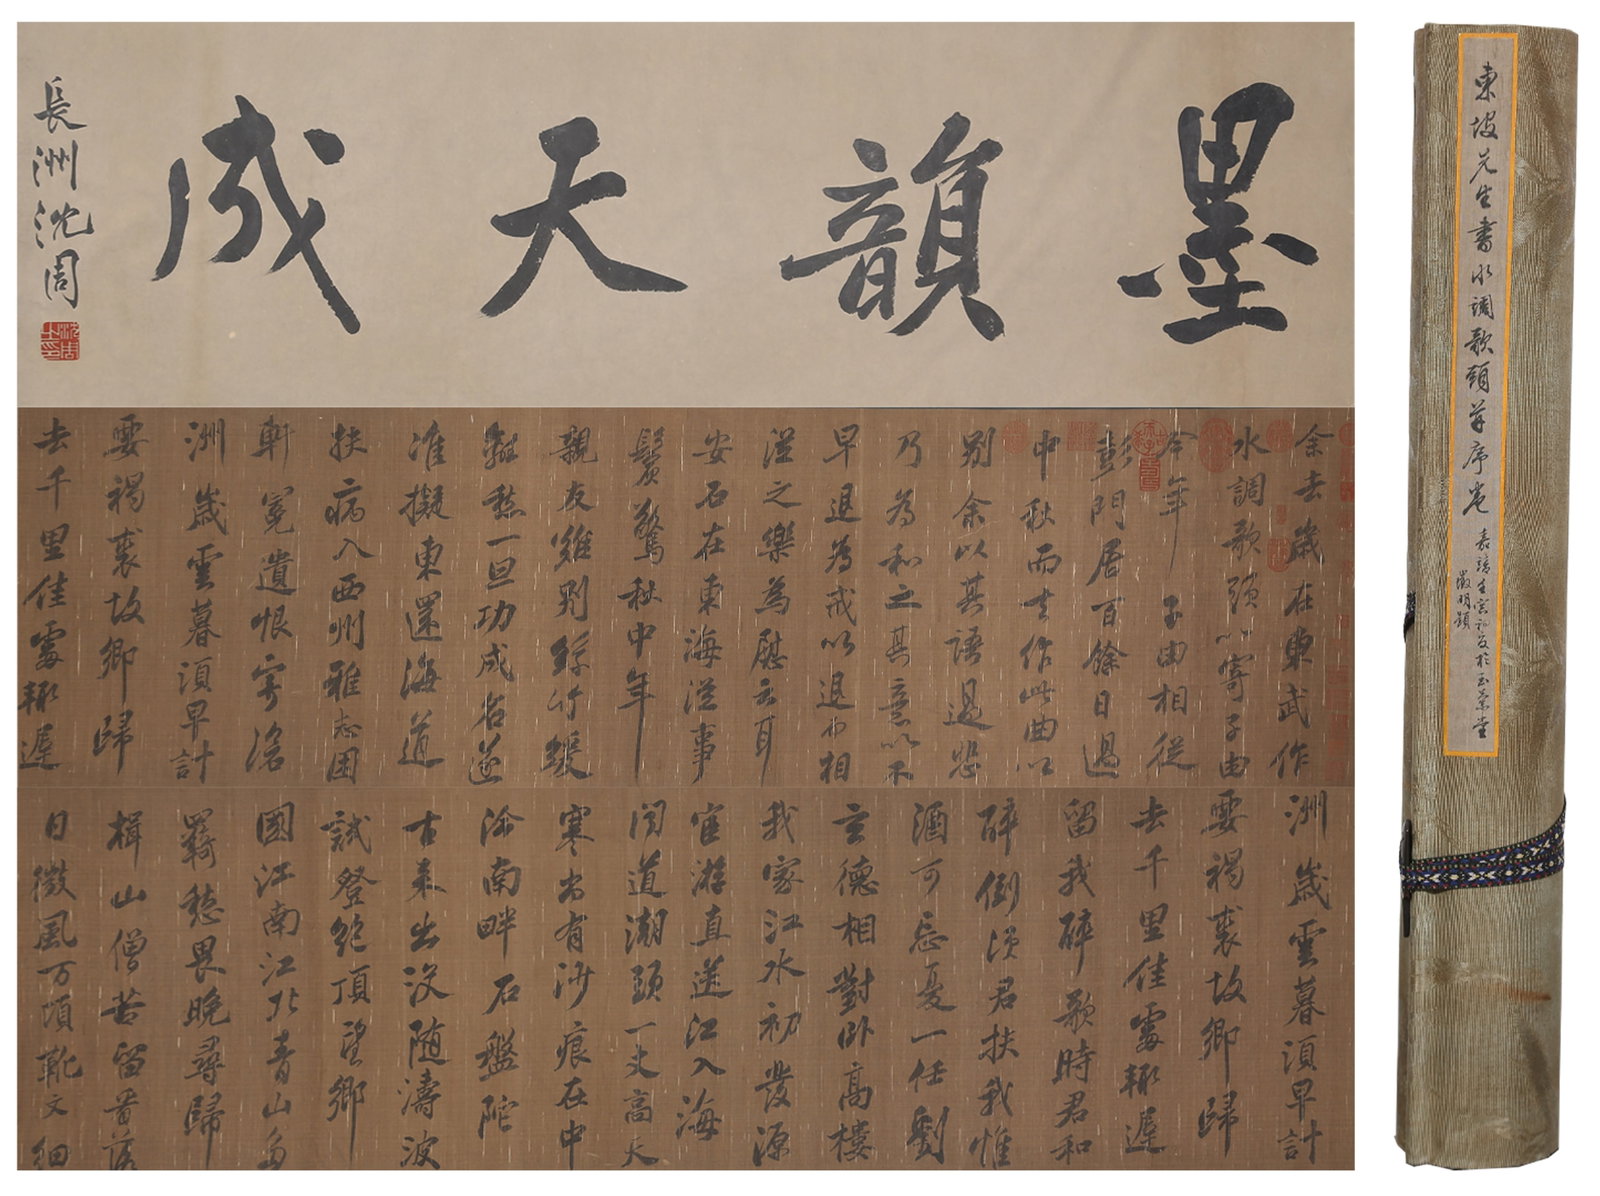 墨韻天成
長洲沈周
余去歲在東武作
水調歌頭以寄子由
今年子由相從
彭門居百餘日過
中秋而去作此曲以
別余以其語過悲
乃為和之其意以不
早退為戒以退而相
從之樂為慰云耳
安石在東海從事
鬢驚秋中年
親友難別絲竹緩
離愁一旦功成名遂
准擬東還海道
扶病入西州雅志困
軒冕遺恨寄滄
洲歲雲暮須早計
要褐裘故鄉歸
去千里佳處輒遲
洲歲雲暮須早計
要褐裘故鄉歸
去千里佳處輒遲
留我醉歌時君和
醉倒須君扶我惟
酒可忘憂一任劉
玄德相對臥高樓
我家江水初發源
宦游直送江入海
聞道潮頭一丈高天
寒尚有沙痕在中
泠南畔石盤陀
古來出沒隨濤波
試登絕頂望鄉
國江南江北青山多
羈愁畏晚尋歸
楫山僧苦留看落
日微風万頃靴文細
東坡先生書水調歌頭并序卷
徵明題